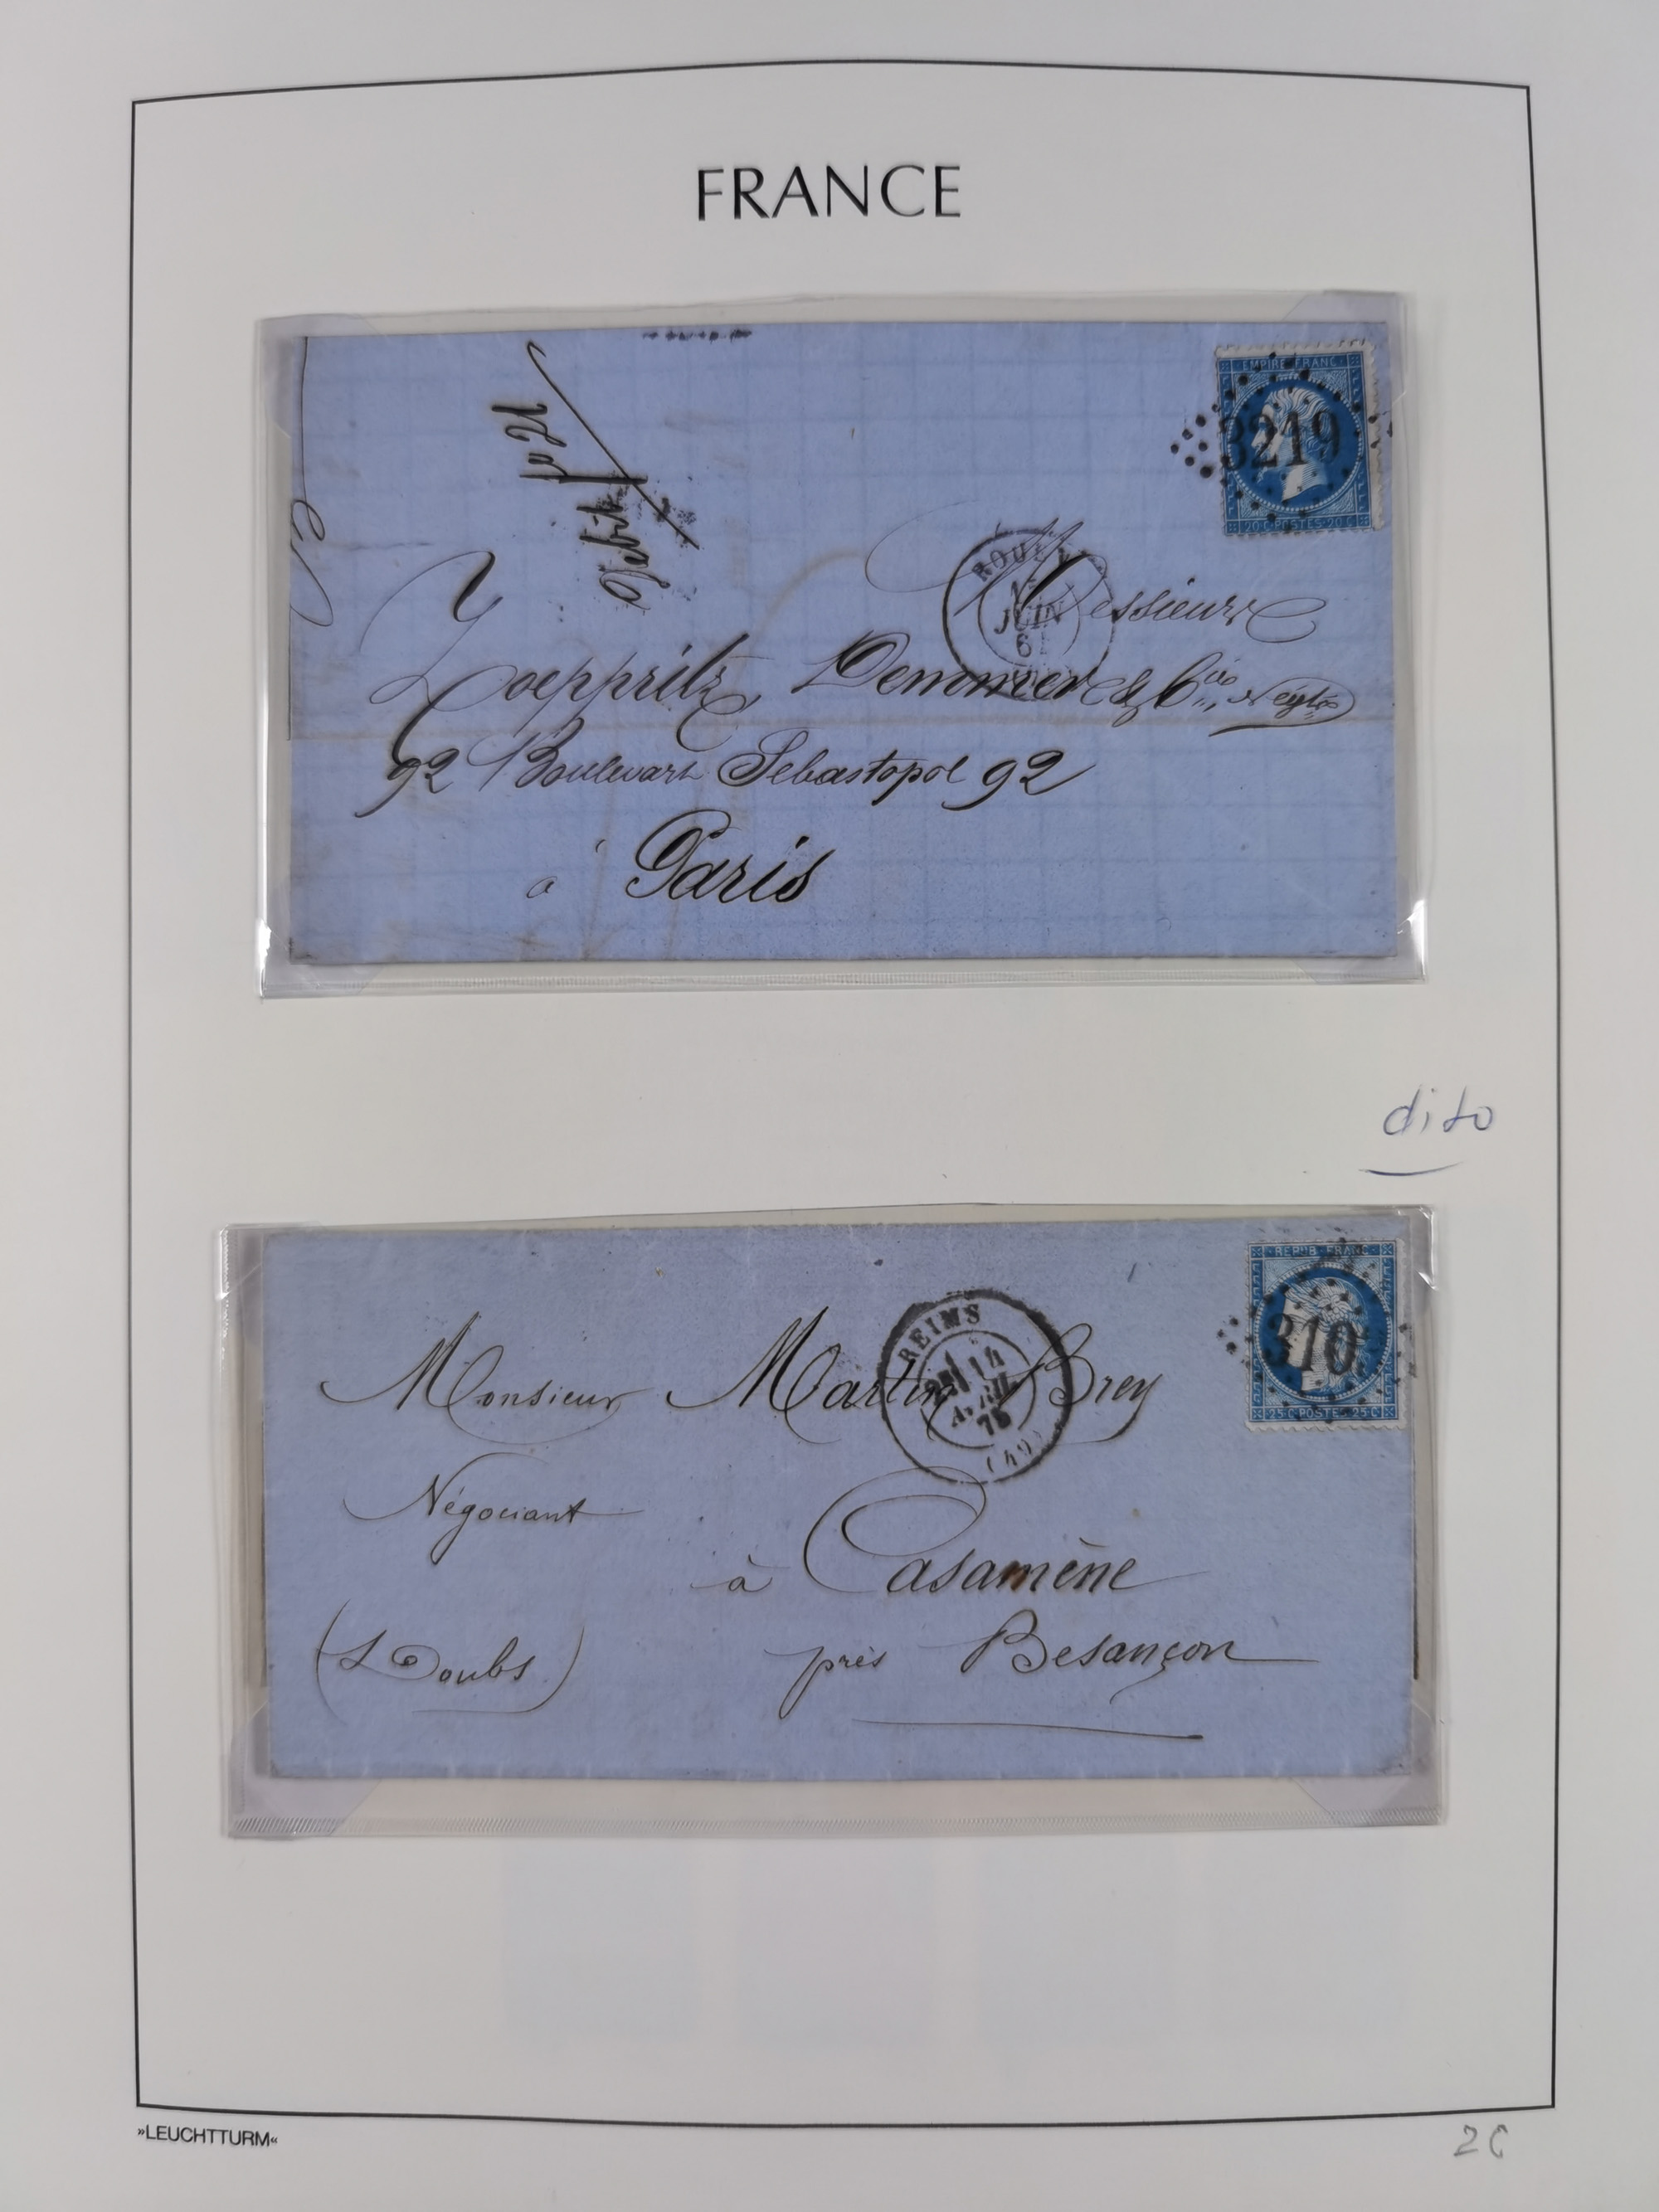 FRANCE
EMPIRE FRANC
3219
20 C POSTES 20 C
JUIN
Messieurs
Zoeppritz, Demmer & Cie
92 Boulevart Sebastopol 92
à Paris
dito
REPUB FRANC
310
25 C POSTES 25 C
REIMS
14
AVRIL
(49)
Monsieur Martin Brey
Négociant
à Casamène
(Doubs) près Besançon
»LEUCHTTURM«